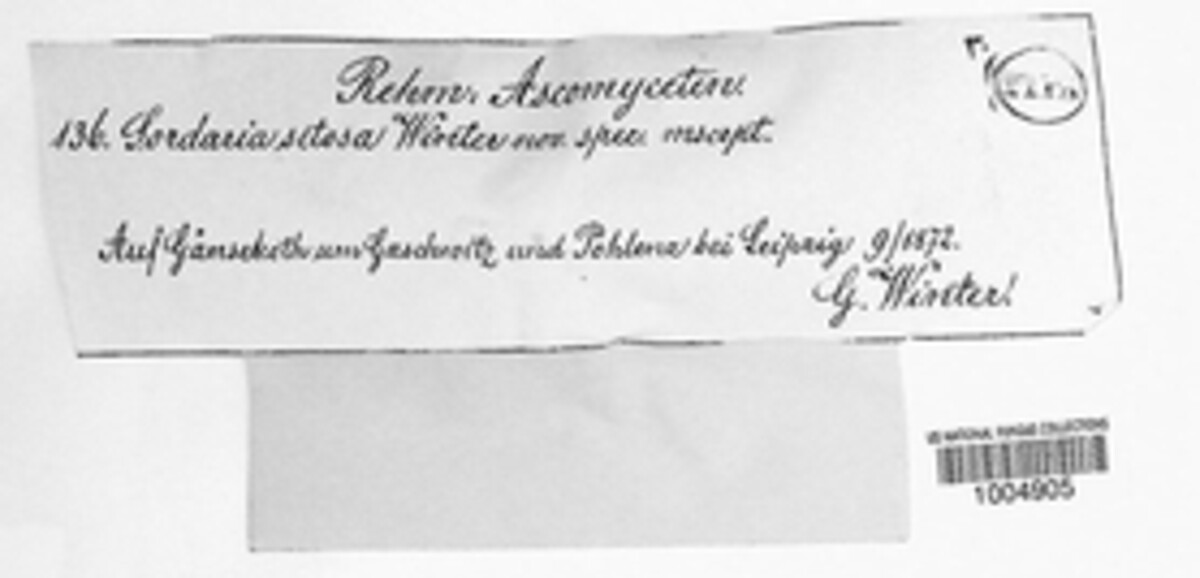 Rehm. Ascomyceten.
136. Sordaria setosa Winter nov. spec. mscpt.
Auf Gänsekoth um Gaschwitz und Pohlenz bei Leipzig 9/1872.
G. Winter!
US NATIONAL FUNGUS COLLECTIONS
1004905